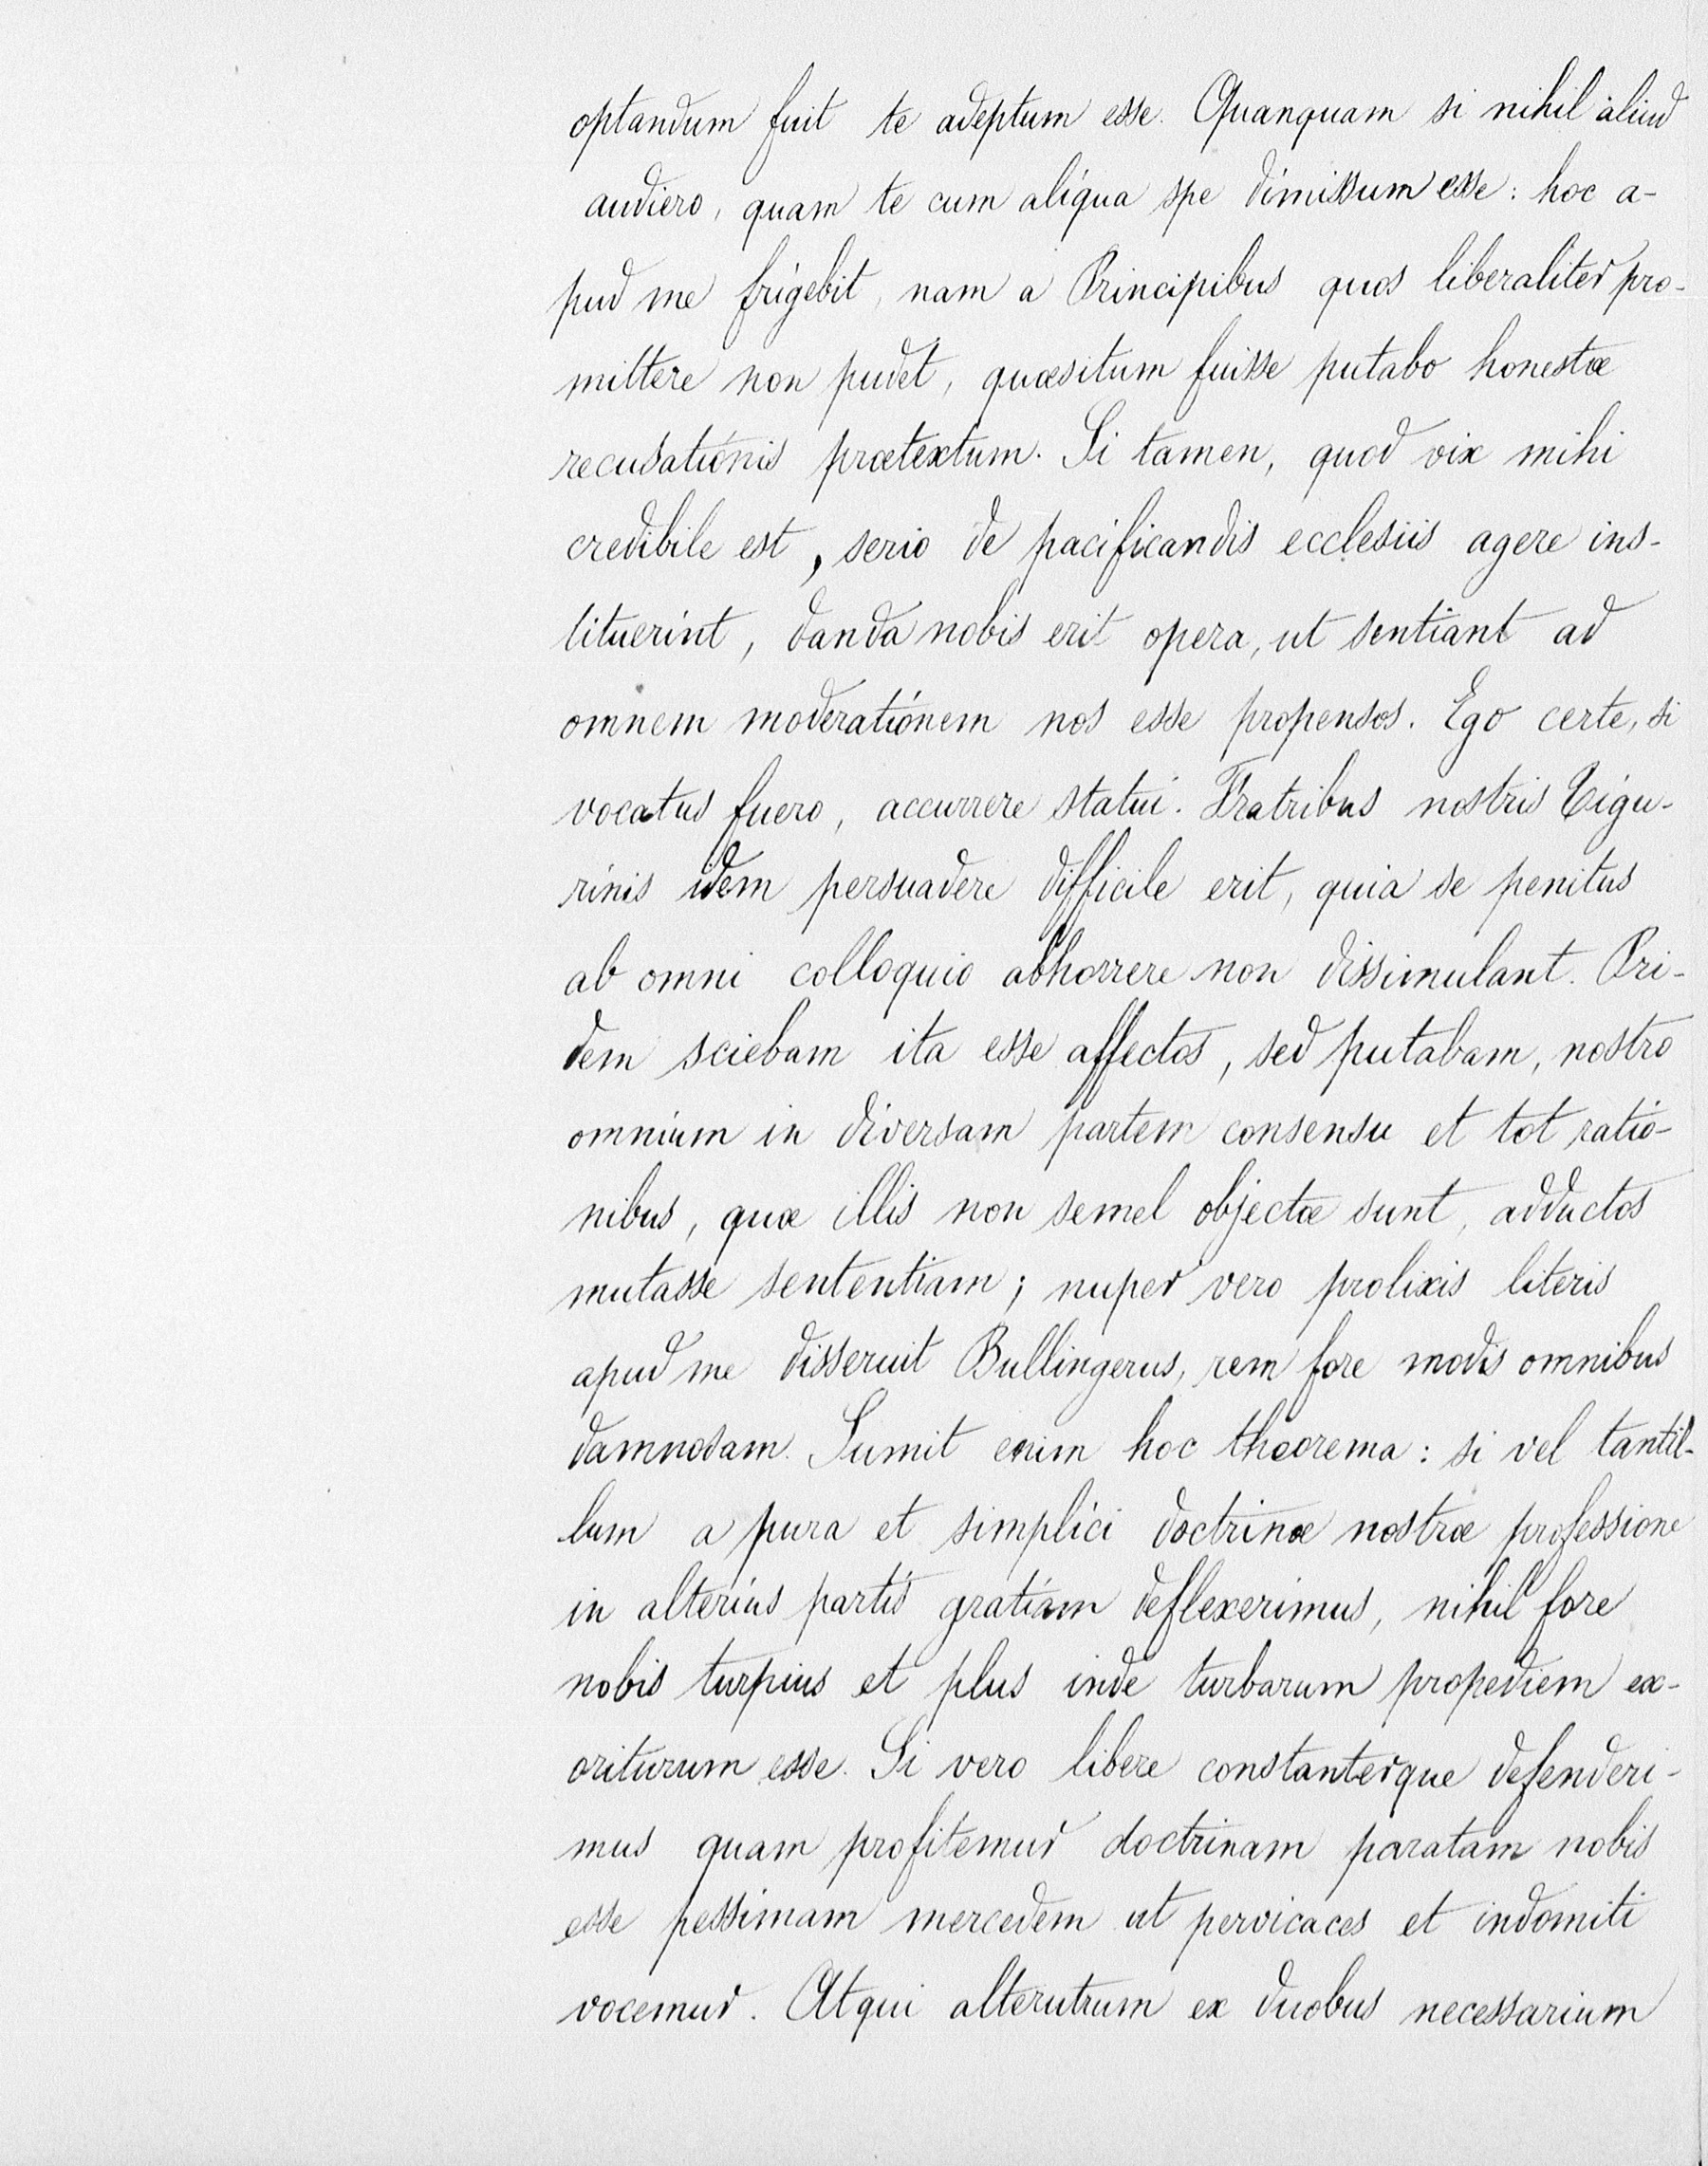 optandum fuit te adeptum esse. Quanquam si nihil aliud
audiero, quam te cum aliqua spe dimissum esse: hoc a-
pud me frigebit, nam a Principibus quos liberaliter pro-
mittere non pudet, quæsitum fuisse putabo honestæ
recusationis prætextum. Si tamen, quod vix mihi
credibile est, serio de pacificandis ecclesiis agere ins-
tituerint, danda nobis erit opera, ut sentiant ad
omnem moderationem nos esse propensos. Ego certe, si
vocatus fuero, accurrere statui. Fratribus nostris Tigu-
rinis idem persuadere difficile erit, quia se penitus
ab omni colloquio abhorrere non dissimulant. Pri-
dem sciebam ita esse affectos, sed putabam, nostro
omnium in diversam partem consensu et tot ratio-
nibus, quæ illis non semel objectæ sunt, adductos
mutasse sententiam; nuper vero prolixis literis
apud me disseruit Bullingerus, rem fore modis omnibus
damnosam. Sumit enim hoc theorema: si vel tantil-
lum a pura et simplici doctrinæ nostræ professione
in alterius partis gratiam deflexerimus, nihil fore
nobis turpius et plus inde turbarum propediem ex-
oriturum esse. Si vero libere constanterque defenderi-
mus quam profitemur doctrinam paratam nobis
esse pessimam mercedem ut pervicaces et indomiti
vocemur. Atqui alterutrum ex duobus necessarium